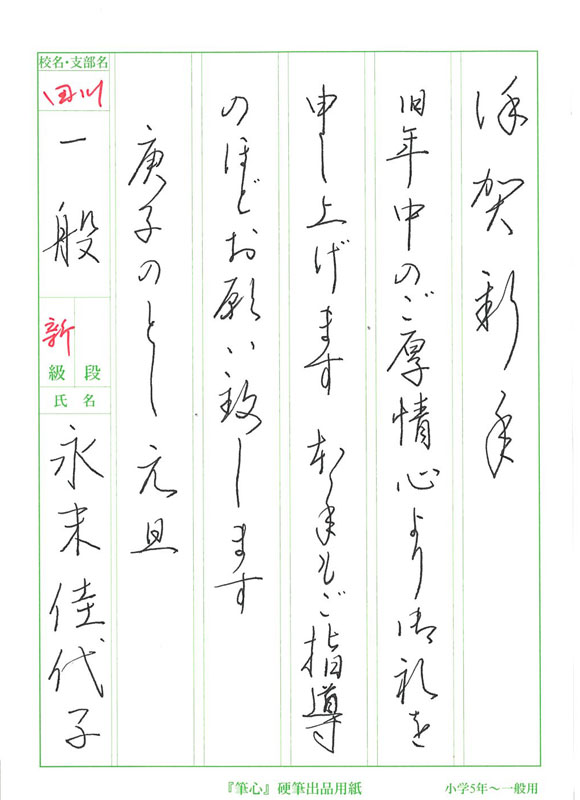 謹賀新年
旧年中のご厚情心より御礼を
申し上げます 本年もご指導
のほどお願い致します
庚子のとし 元旦
校名・支部名
田川
一般
新
級 段
氏名
永末佳代子
『筆心』硬筆出品用紙
小学5年〜一般用